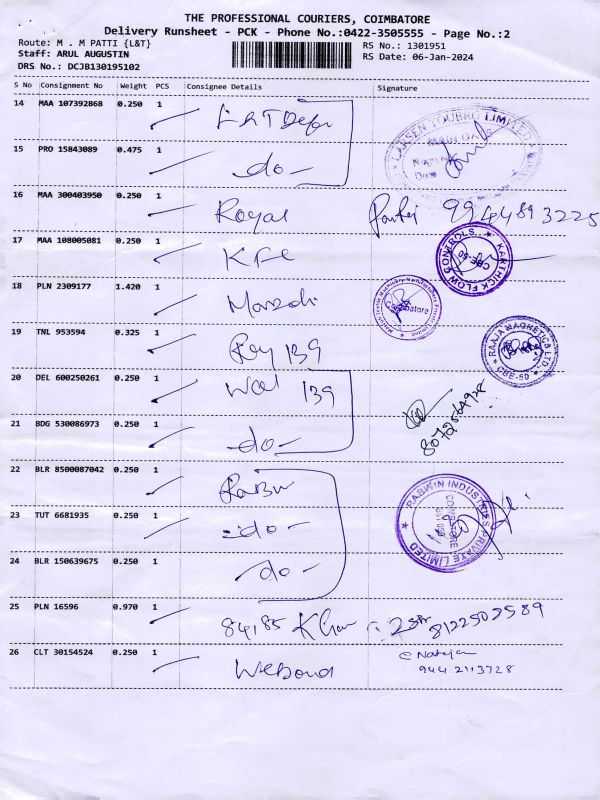 THE PROFESSIONAL COURIERS, COIMBATORE
Delivery Runsheet - PCK - Phone No.:0422-3505555 - Page No.:2
Route: M . M PATTI {L&T}
RS No.: 1301951
Staff: ARUL AUGUSTIN
RS Date: 06-Jan-2024
DRS No.: DCJB130195102
S No Consignment No Weight PCS Consignee Details Signature
14 MAA 107392868 0.250 1
LARSEN TOUBRO LIMITED
MAIN GATE
Name
Date
15 PRO 15843089 0.475 1 -do-
16 MAA 300403950 0.250 1 Royal 9944893225
17 MAA 108005081 0.250 1
KARTHICK FLOW CONTROLS
CBE-50
18 PLN 2309177 1.420 1
Coimbatore
19 TNL 953594 0.325 1 139
RAAJA MAGNETICS LTD.
CBE-50
20 DEL 600250261 0.250 1 139
21 BDG 530086973 0.250 1 -do-
22 BLR 8500087042 0.250 1
RABWIN INDUSTRIES PRIVATE LIMITED
COIMBATORE
23 TUT 6681935 0.250 1 -do-
24 BLR 150639675 0.250 1 -do-
25 PLN 16596 0.970 1 84,85 Khan 8122502589
26 CLT 30154524 0.250 1
9442113728